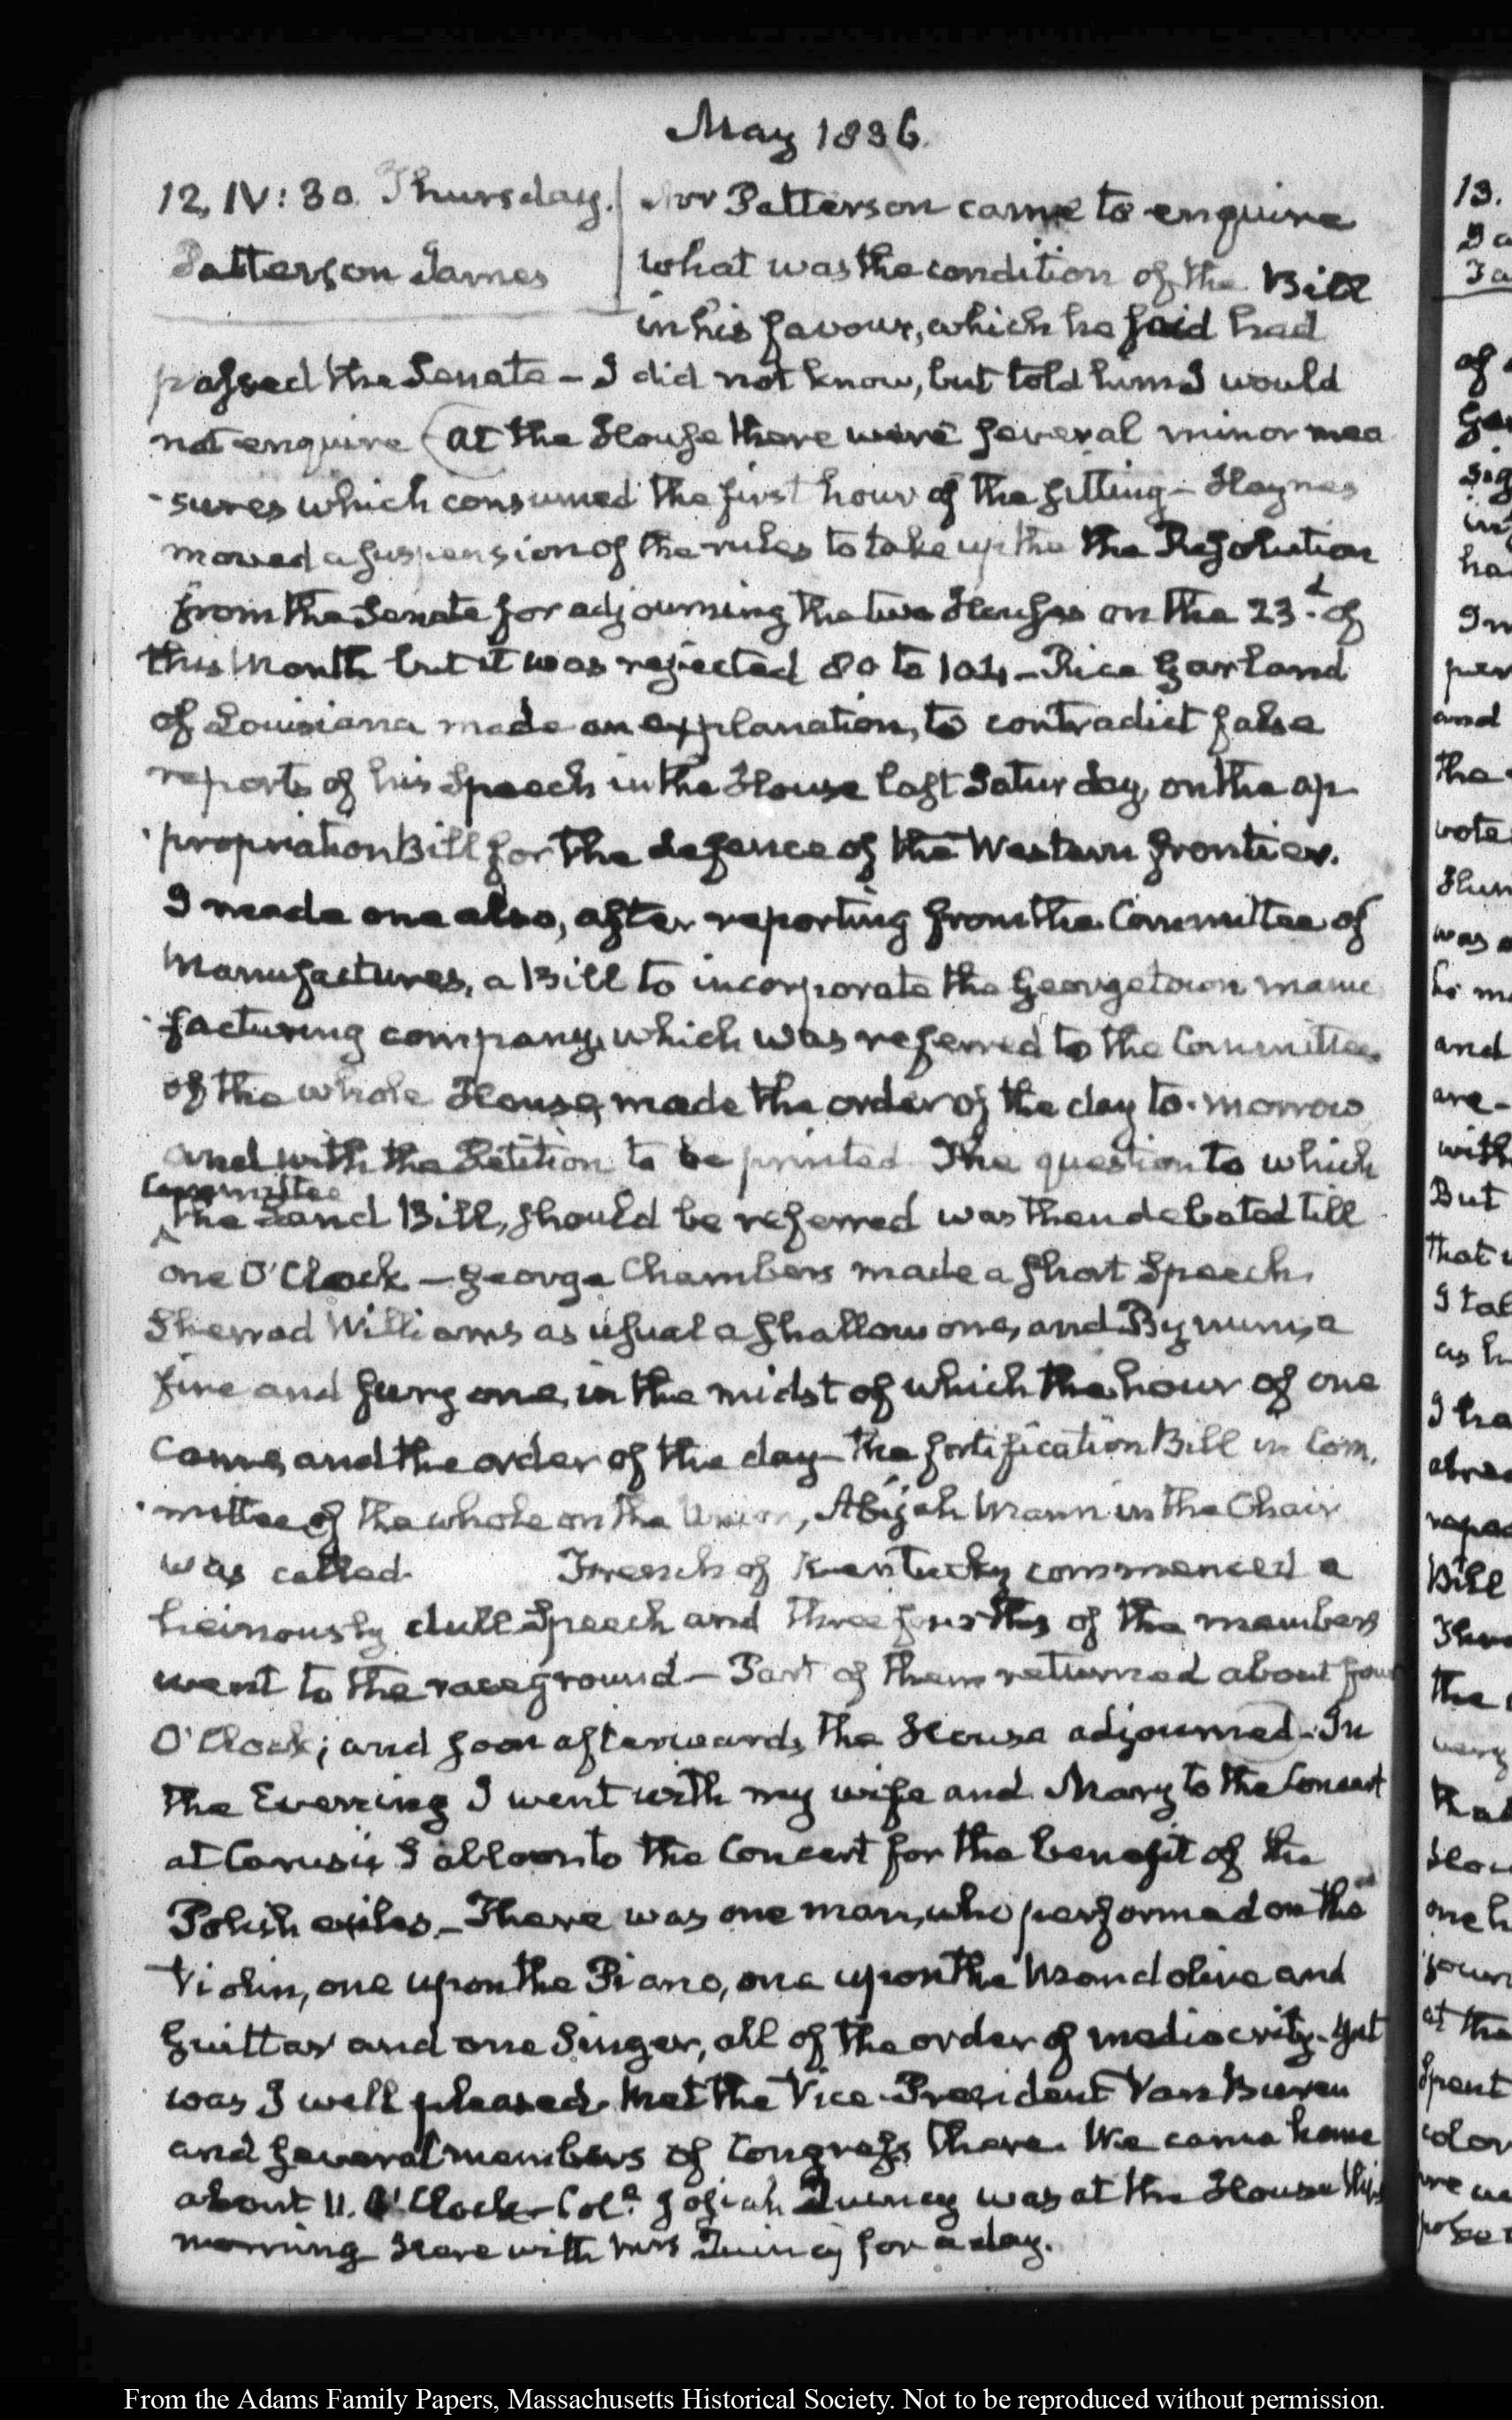 May 1836.
12. IV:30. Thursday.
Patterson James
Mr Patterson came to enquire
what was the condition of the Bill
in his favour, which he said had
passed the Senate — I did not know, but told him I would
not enquire (At the House there were several minor mea
-sures which consumed the first hour of the sitting — Haynes
moved a suspension of the rules to take up the the Resolution
from the Senate for adjourning the two Houses on the 23.d of
this Month but it was rejected 80 to 104 — Rice Garland
of Louisiana made an explanation, to contradict false
reports of his Speech in the House last Saturday, on the ap
-propriation Bill for the defence of the Western frontier.
I made one also, after reporting from the Committee of
Manufactures, a Bill to incorporate the Georgetown manu
-facturing company, which was referred to the Committee
of the whole House, made the order of the day to-morrow
and with the Petition to be printed The question to which
Committee
^ the Land Bill, should be referred was then debated till
one O'Clock — George Chambers made a short Speech,
Sherrod Williams as usual a shallow one, and Bynum, a
fire and fury one, in the midst of which the hour of one
came, and the order of the day — the fortification Bill in Com.
-mittee of the whole on the Union, Abijah Mann in the Chair
was called. French of Kentucky commenced a
heinously dull Speech and three fourths of the members
went to the race ground — Part of them returned about four
O'Clock; and soon afterwards the House adjourned — In
the Evening I went with my wife and Mary to the Concert
at Carusi's Saloon to the Concert for the benefit of the
Polish exiles — There was one man, who performed on the
Violin, one upon the Piano, one upon the Mandoline and
Guittar and one Singer, all of the order of mediocrity — Yet
was I well pleased. Met the Vice-President Van Buren
and several members of Congress there. We came home
about 11. O'Clock — Col.o Josiah Quincy was at the House this
morning Here with Mrs Quincy for a day.
13.
of
and
the
vote
was
and
are-
with
But
that
as h
Bill
the
at the
Spent
From the Adams Family Papers, Massachusetts Historical Society. Not to be reproduced without permission.